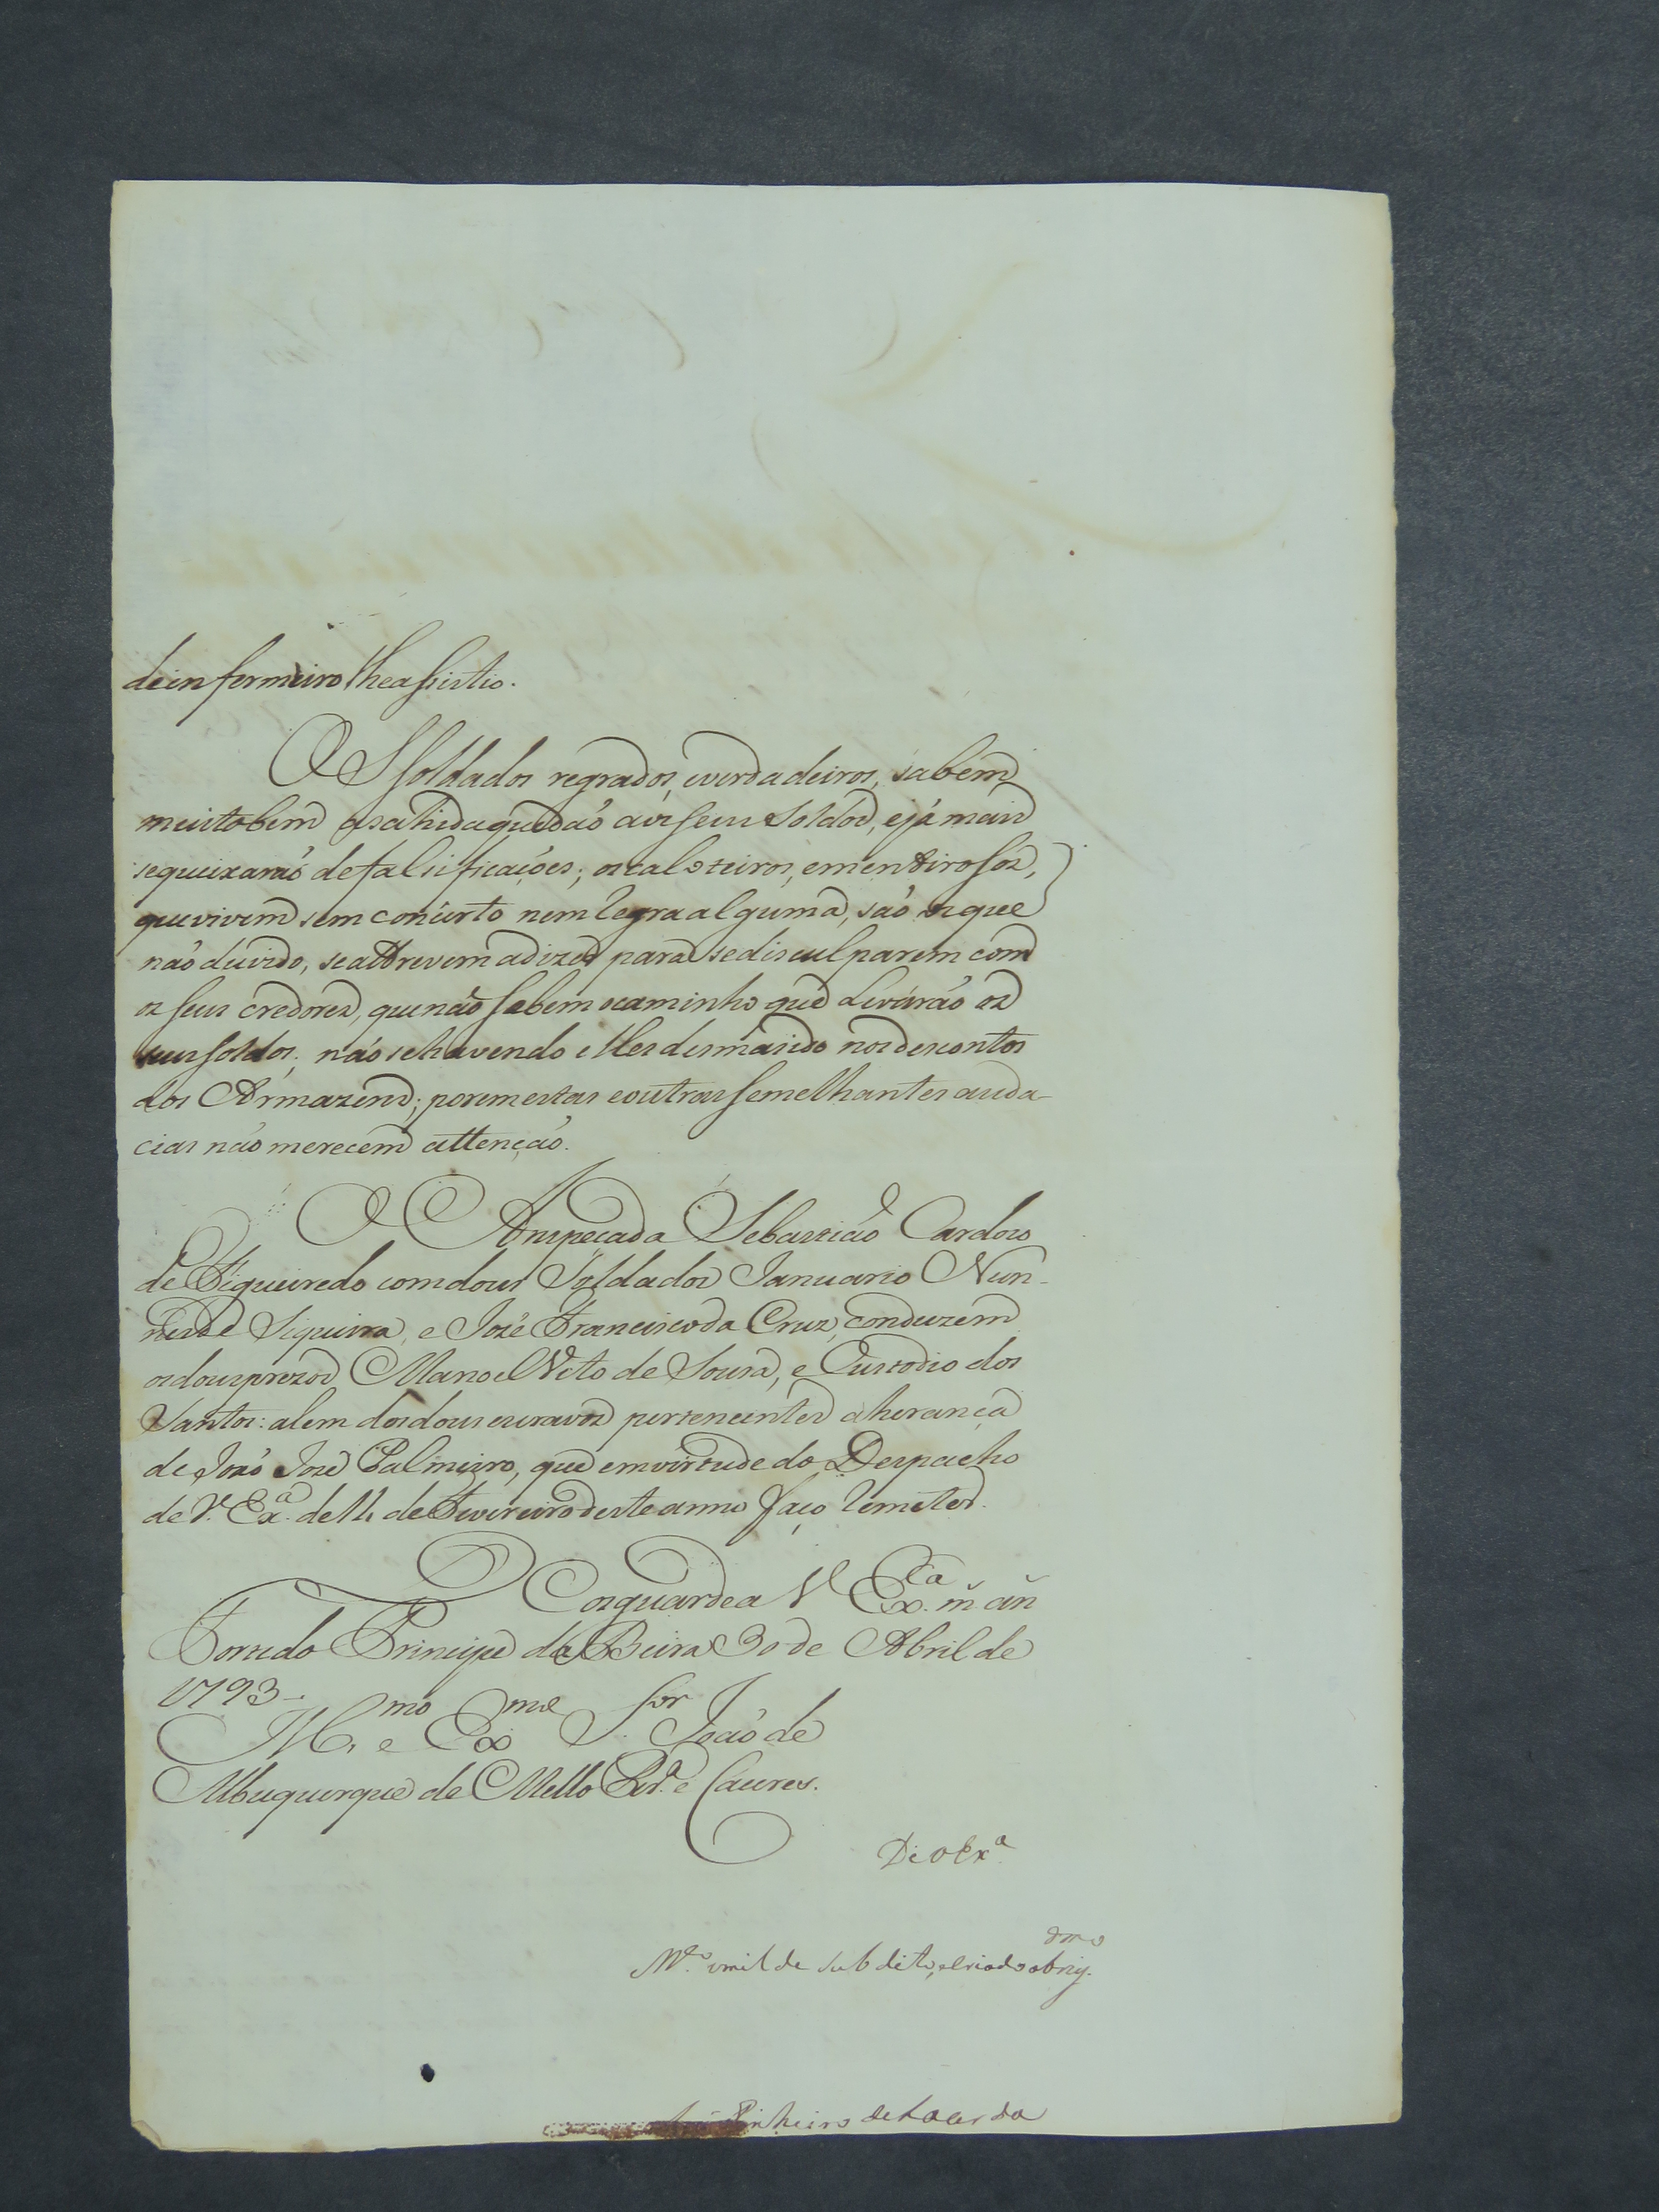 deinfermeiro lhe assistio.
OS Soldados regrados, everdadeiros, sabem
muitobem asahida que dáo aos seus Soldos, ejá mais
sequeixaráo defalsificaçóes; os caloteiros, ementirosos,
que vivem sem concerto nem regra alguma, sáo os que
náo duvido, se attrevem adizer para se disculparem com
os seus credores, que náo sabem ocaminho que Leváráo os
seus soldos; náo se havendo elles demasido nos descontos
dos Armazens; porem estas e outras semelhantes auda-
cias náo merecem attençáo.
O Anspeçada Sebastiáo Cardozo
de Figueiredo com dous Soldados Januario Nun-
nes de Siqueira, e Jozé Francisco da Cruz, conduzem
os dous prezos Manoel Vito de Souza, e Custodio dos
Santos: alem dos dous escravos pertencentes á herança
de Joáo Jozé Palmeiro, que em virtude do Despacho
de V. Exª. de 11 de Fevereiro deste anno faço remeter.
Deos guarde a V. Exca. m̃ añ
Forte do Principe da Beira 30 de Abril de
1793.
Illmo. e Exmo. Snor. Joáo de
Albuquerque de Mello Perª. e Caceres.
De V Exª.
Mto. umilde subdito, e criado obrigdmo
Pinheiro de Lacerda